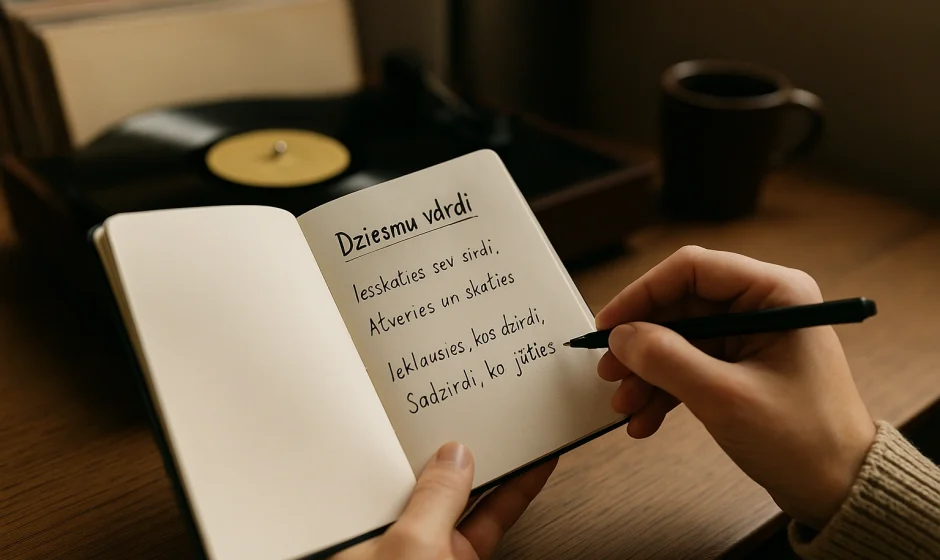 Dziesmu vdrdi
Iesskaties sev sirdi,
Atveries un skaties
Ieklausies, kos dzirdi,
Sadzirdi, ko jūties